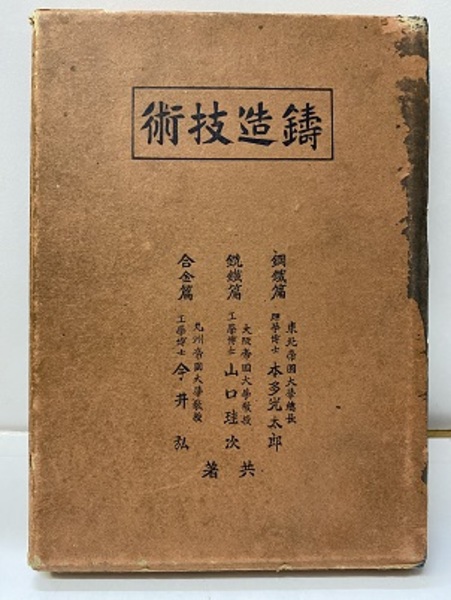 鑄造技術
鋼鐵篇
東北帝國大學總長
理學博士 本多光太郎
銑鐵篇
大阪帝國大學敎授
工學博士 山口珪次
合金篇
九州帝國大學敎授
工學博士 今井弘
共著